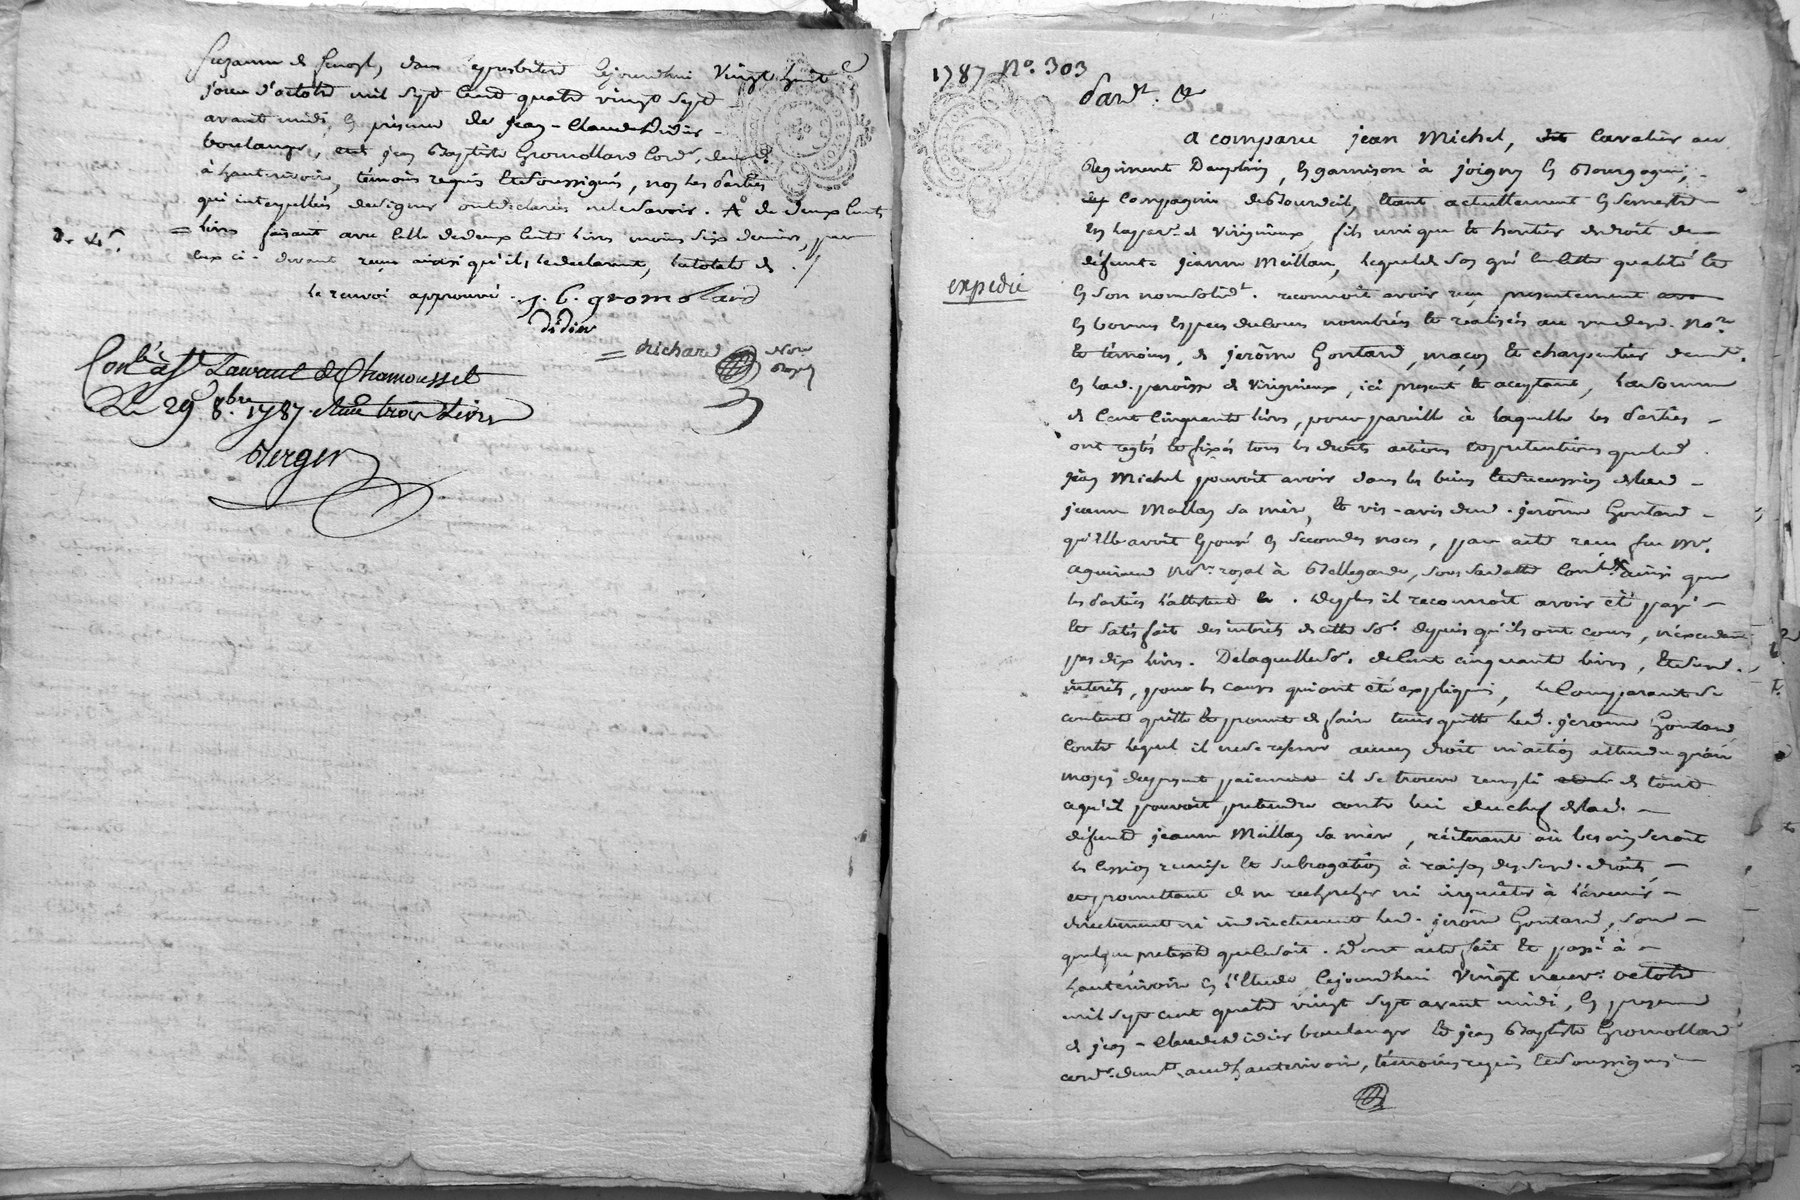 dans cejourdhui vingt huit
jour d'octobre mil sept cent quatre vingt sept
avant midi, en présence de jean-Claude Didier
boulanger, et jean Baptiste Gromollard Cord.r, dem.t
à hauterivoire, témoins requis et soussignés, non les parties
qui interpellées de signer ont déclaré ne le savoir. A de deux cents
livres faisant avec celle de deux cents livres moins six deniers, par
eux ci-devant reçue ainsi qu'ils le déclarent, la totale de
le renvoi approuvé. j. b. gromolard
didier
richard Not.re Royal
Con.lé à S.t Laurent de Chamousset
Le 29 8.bre 1787. Reçu trois Livres
Berger
1787 N°. 303
Pard.t &
A comparu jean Michel, cavalier au
Régiment Dauphin, en garnison à joigny en Bourgogne,
compagnie de Bourdeil, étant actuellement en semestre
en la par.se de Virignieux fils unique et héritier de droit de
défunte jeanne Meillan, lequel de son gré en cette qualité et
expédié
en son nom solid.t reconnoit avoir reçu présentement
en bonnes espèces de cours nombrées et réalisées au vu de nd. No.re
et témoins, de jerôme Gontard, maçon et charpentier dem.t
en lad. paroisse de Virignieux, ici présent et aceptant, la somme
de cent cinquante livres, pour pareille à laquelle les parties
ont réglés et fixés tous les droits actions et prétentions que led.
jean Michel pouvoit avoir dans les biens et succession de lad.
jeanne Maillan sa mère, et vis-avis dud. jerôme Gontard
qu'elle avoit épousé en secondes noces, par acte reçu feu M.e
aguiraud No.re royal à Bellegarde, sous sa datte Conl.é ainsi que
les parties l'attestent. De plus il reconnoit avoir été payé
et satisfait des intérêts de cette So.e depuis qu'ils ont cours, n'excedant
pas dix livres. De laquelle So.e de cent cinquante livres, et desd.
intérêts, pour les causes qui ont été expliquées, le Comparant se
contente quitte et promet de faire tenir quitte led. jerôme Gontard,
contre lequel il ne se reserve aucun droit ni action attendu qu'au
moyen du présent paiement il se trouve rempli de tout
ce qu'il pouvoit pretendre contre lui du chef de lad.
défunte jeanne Meillan sa mère, réitérant où besoin seroit
les cession remise et subrogation à raison de sesd. droits,
et promettant de ne rechercher ni inquiéter à l'avenir
directement ni indirectement led. jerôme Gontard, sous
quelque pretexte que ce soit. Dont acte fait et passé à
hauterivoire en l'Etude cejourdhui vingt neuv.e octobre
mil sept cent quatre vingt sept avant midi, en présence
de jean-Claude Didier boulanger et jean Baptiste Gromollard
cord.r dem.t aud. hauterivoire, témoins requis et soussignés